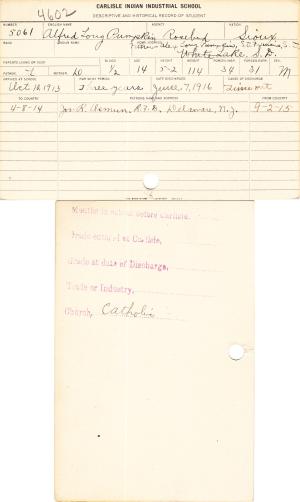 4602
CARLISLE INDIAN INDUSTRIAL SCHOOL
DESCRIPTIVE AND HISTORICAL RECORD OF STUDENT
NUMBER ENGLISH NAME AGENCY NATION
5061 Alfred Long Pumpkin Rosebud Sioux
BAND INDIAN NAME HOME ADDRESS
Long Pumpkin,
White Lake, S.D.
PARENTS LIVING OR DEAD BLOOD AGE HEIGHT WEIGHT FORCED INSP. FORCED EXPR. SEX
FATHER L MOTHER D 1/2 14 5-2 114 34 31 M
ARRIVED AT SCHOOL FOR WHAT PERIOD DATE DISCHARGED CAUSE OF DISCHARGE
Oct 12, 1913 Three years June 7, 1916 Time out
TO COUNTRY PATRONS NAME AND ADDRESS FROM COUNTRY
4-8-14 Jos. R. R.F.D. Delaware, N.J. 9-2-15
Months in school before Carlisle,
Grade entered at Carlisle,
Grade at date of Discharge,
Trade or Industry,
Church, Catholic